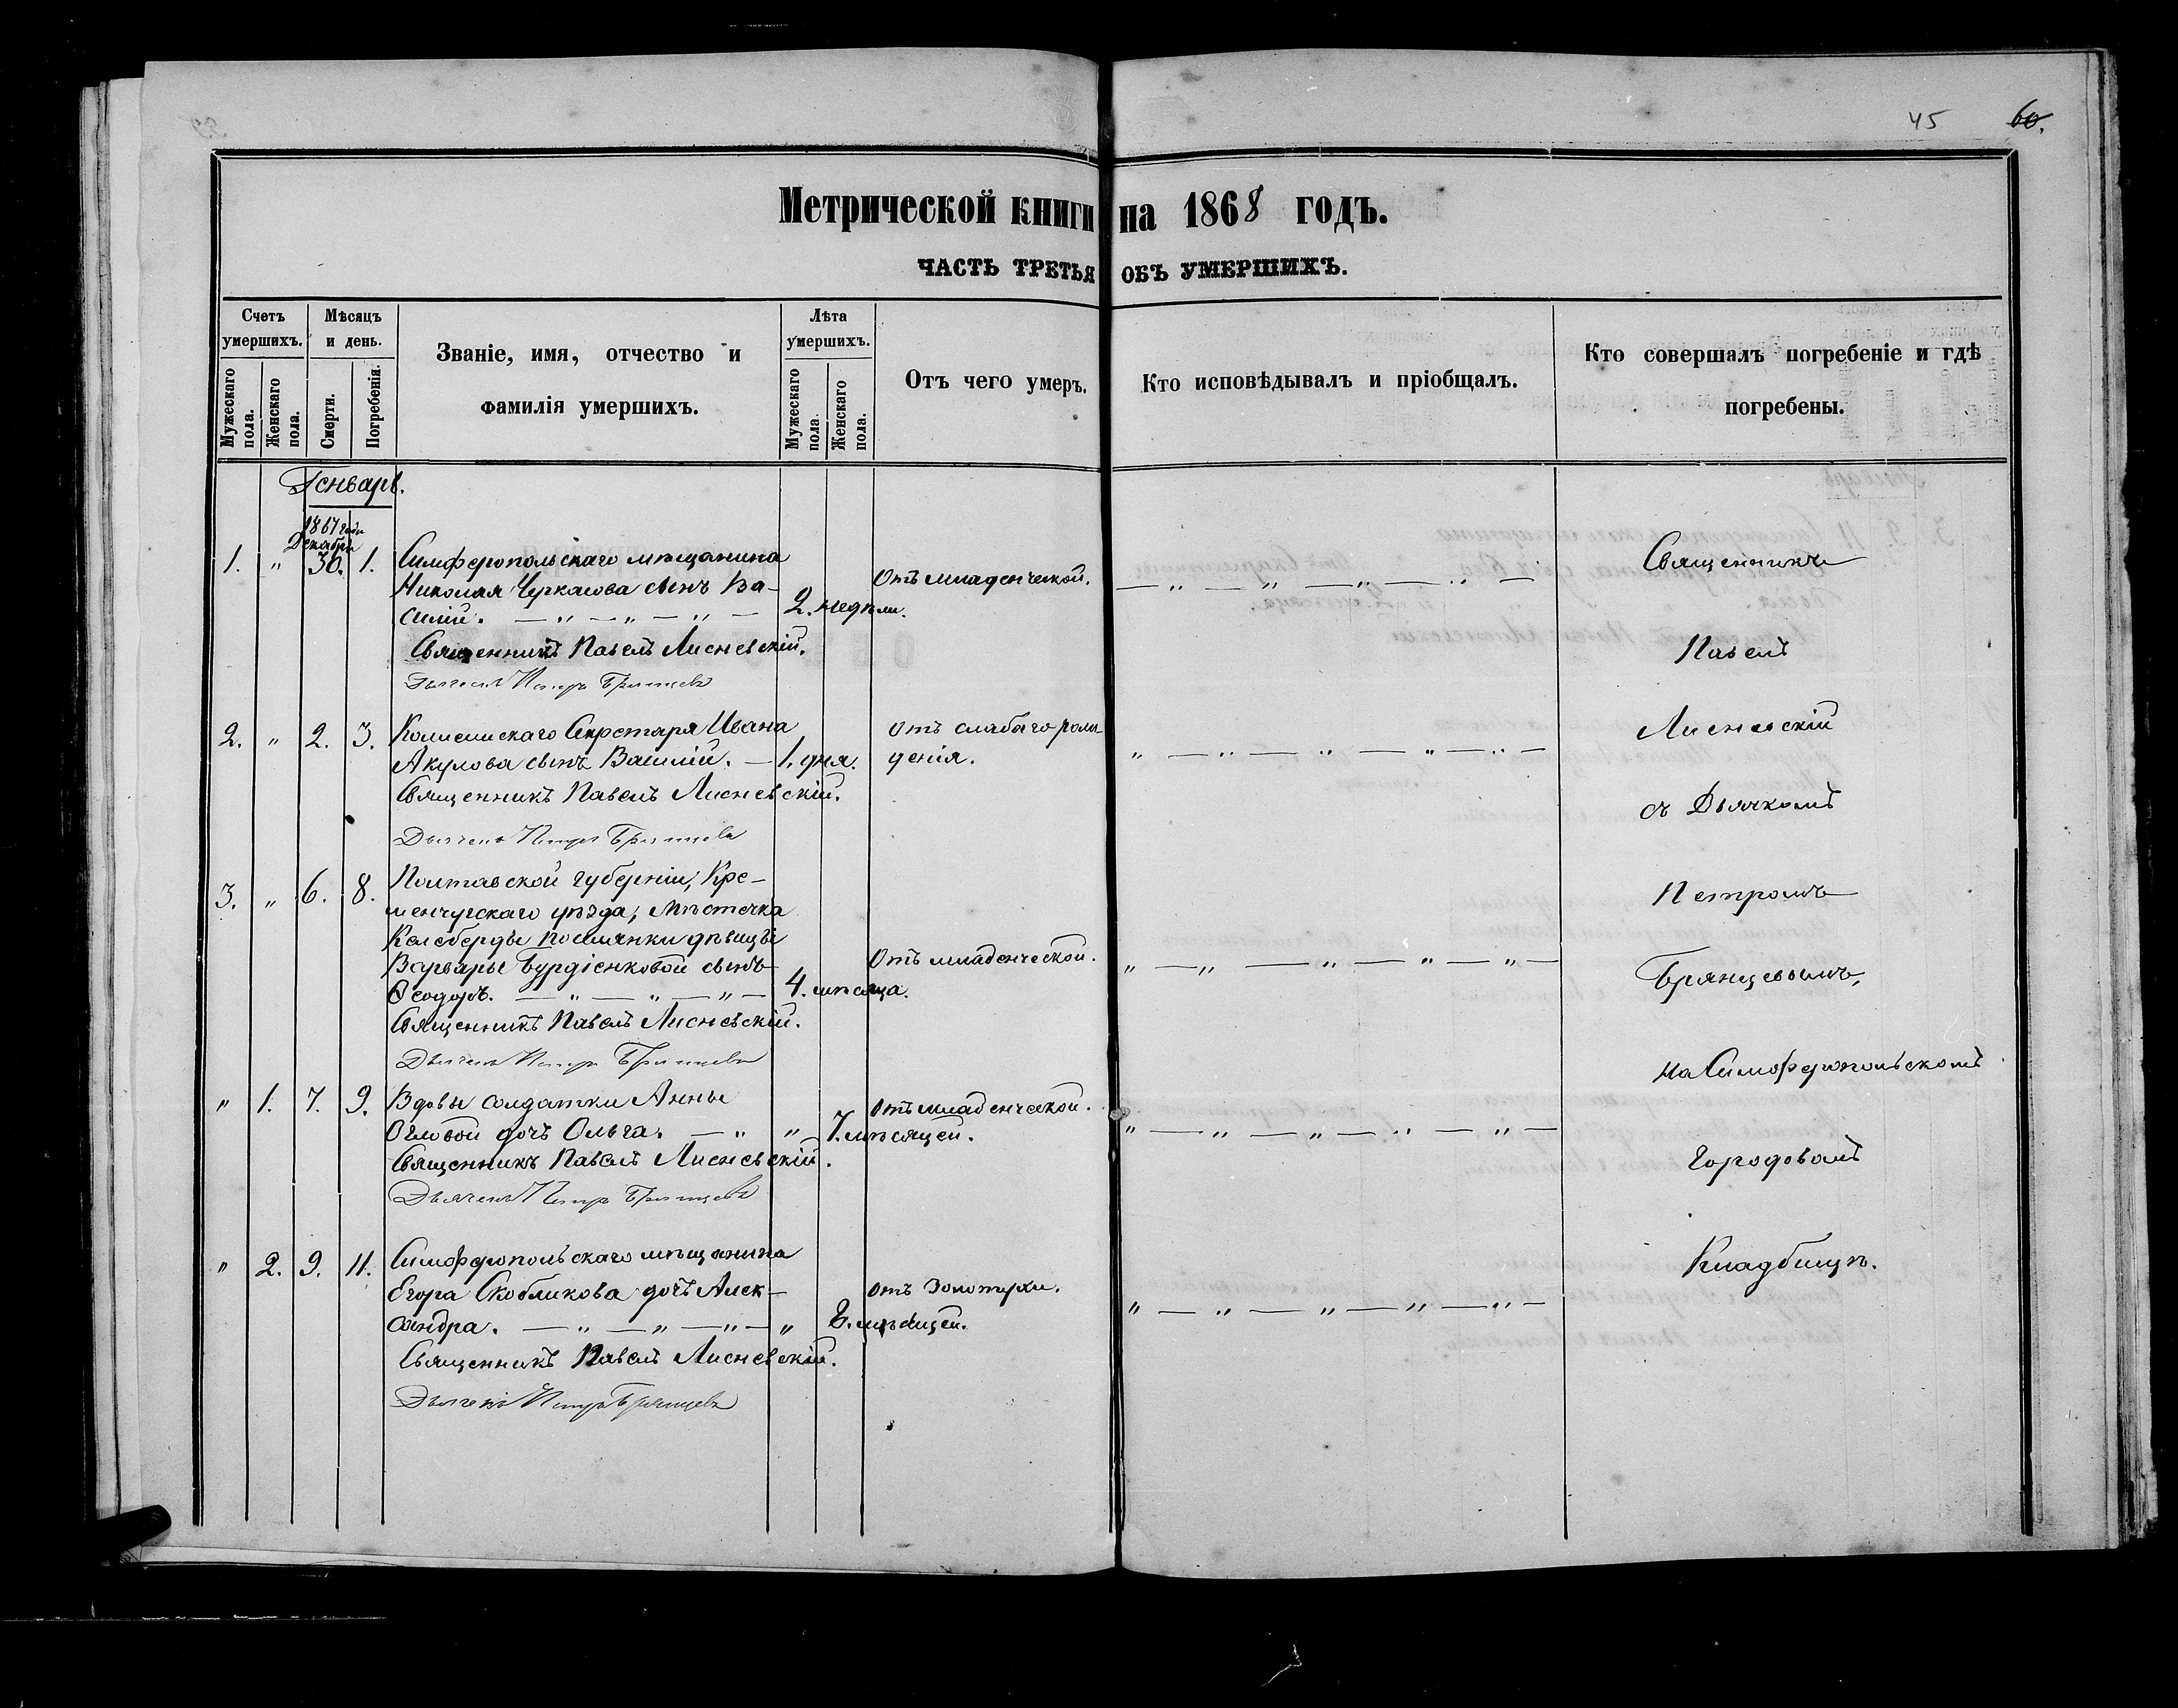 45 60.
Метрической книги на 1868 годъ.
ЧАСТЬ ТРЕТЬЯ ОБЪ УМЕРШИХЪ.
Счетъ умершихъ.
Мужескаго пола.
Женскаго пола.
Мѣсяцъ и день.
Смерти.
Погребенія.
Званіе, имя, отчество и
фамилія умершихъ.
Лѣта умершихъ.
Мужескаго пола.
Женскаго пола.
Отъ чего умеръ.
Кто исповѣдывалъ и пріобщалъ.
Кто совершалъ погребеніе и гдѣ
погребены.
Генварь.
1867 года
Декабря
1. " 30. 1. Симферопольскаго мѣщанина
Николая Черкасова сынъ Ва-
силій. — " — " — " — 2. недѣли. Отъ младенческой. — " — " — " — " —
Священникъ Павелъ Лисневскій.
Дьячекъ Петръ Брянцевъ
2. " 2. 3. Коллежскаго Секретаря Ивана
Акулова сынъ Василій. — 1. дня. Отъ слабаго рож-
денія. " — " — " — " — " —
Священникъ Павелъ Лисневскій.
Дьячекъ Петръ Брянцевъ
3. " 6. 8. Полтавской губерніи, Кре-
менчугскаго уѣзда, мѣстечка
Келеберды поселянки дѣвицы
Варвары Бурдіенковой сынъ
Ѳеодоръ. — " — " — " — 4. мѣсяца. Отъ младенческой. " — " — " — " — " —
Священникъ Павелъ Лисневскій.
Дьячекъ Петръ Брянцевъ
" 1. 7. 9. Вдовы солдатки Анны
Огловой дочь Ольга. — " " 7. мѣсяцей. Отъ младенческой. " — " — " — " — " —
Священникъ Павелъ Лисневскій.
Дьячекъ Петръ Брянцевъ
" 2. 9. 11. Симферопольскаго мѣщанина
Егора Скобликова дочь Алек-
сандра. — " — " — " — " 8. мѣсяцей. Отъ Золотухи. " — " — " — " — " —
Священникъ Павелъ Лисневскій.
Дьячекъ Петръ Брянцевъ
Священникъ
Павелъ
Лисневскій
съ Дьячкомъ
Петромъ
Брянцевымъ,
на Симферопольскомъ
Городовомъ
Кладбищѣ.